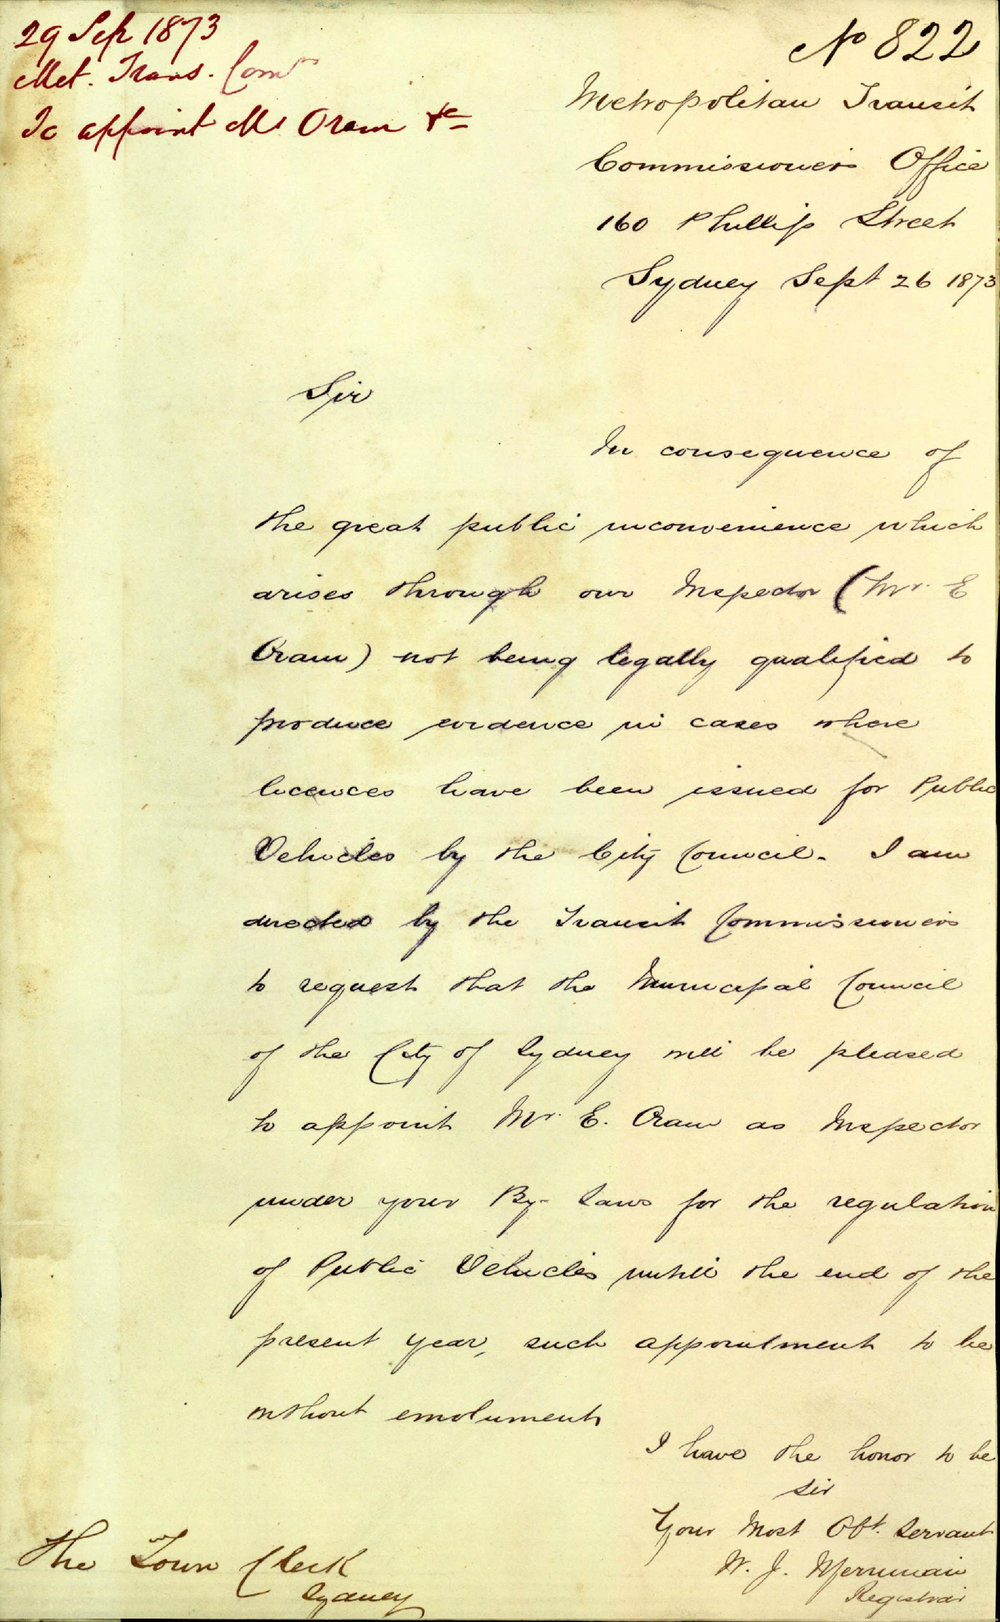 29 Sep 1873
Met. Trans. Comrs
To appoint Mr Oram &c
No 822
Metropolitan Transit
Commissioners Office
160 Phillip Street
Sydney Sept 26 1873
Sir
In consequence of
the great public inconvenience which
arises through our Inspector (Mr. E
Oram) not being legally qualified to
produce evidence in cases where
licences have been issued for Public
Vehicles by the City Council. I am
directed by the Transit Commissioners
to request that the Municipal Council
of the City of Sydney will be pleased
to appoint Mr. E. Oram as Inspector
under your By-Laws for the regulation
of Public Vehicles untill the end of the
present year, such appointment to be
without emolument
I have the honor to be
Sir
Your Most Obt. Servant
W. J. Merriman
Registrar
The Town Clerk
Sydney